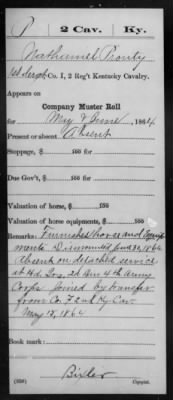 P | 2 Cav. | Ky.
Nathaniel Prouty
1st Sergt, Co. I, 2 Reg't Kentucky Cavalry.
Appears on
Company Muster Roll
for May & June, 1864.
Present or absent Absent
Stoppage, $ 100 for
Due Gov't, $ 100 for
Valuation of horse, $ 100
Valuation of horse equipments, $ 100
Remarks: Furnishes horse and Equip
ments Dismounted June 30, 1864
Absent on detached service
at Hd. Qrs. 2d Div 4th Army
Corps joined by transfer
from Co. F 2nd Ky Cav
May 15, 1864
Book mark:
Bixler
(358) Copyist.